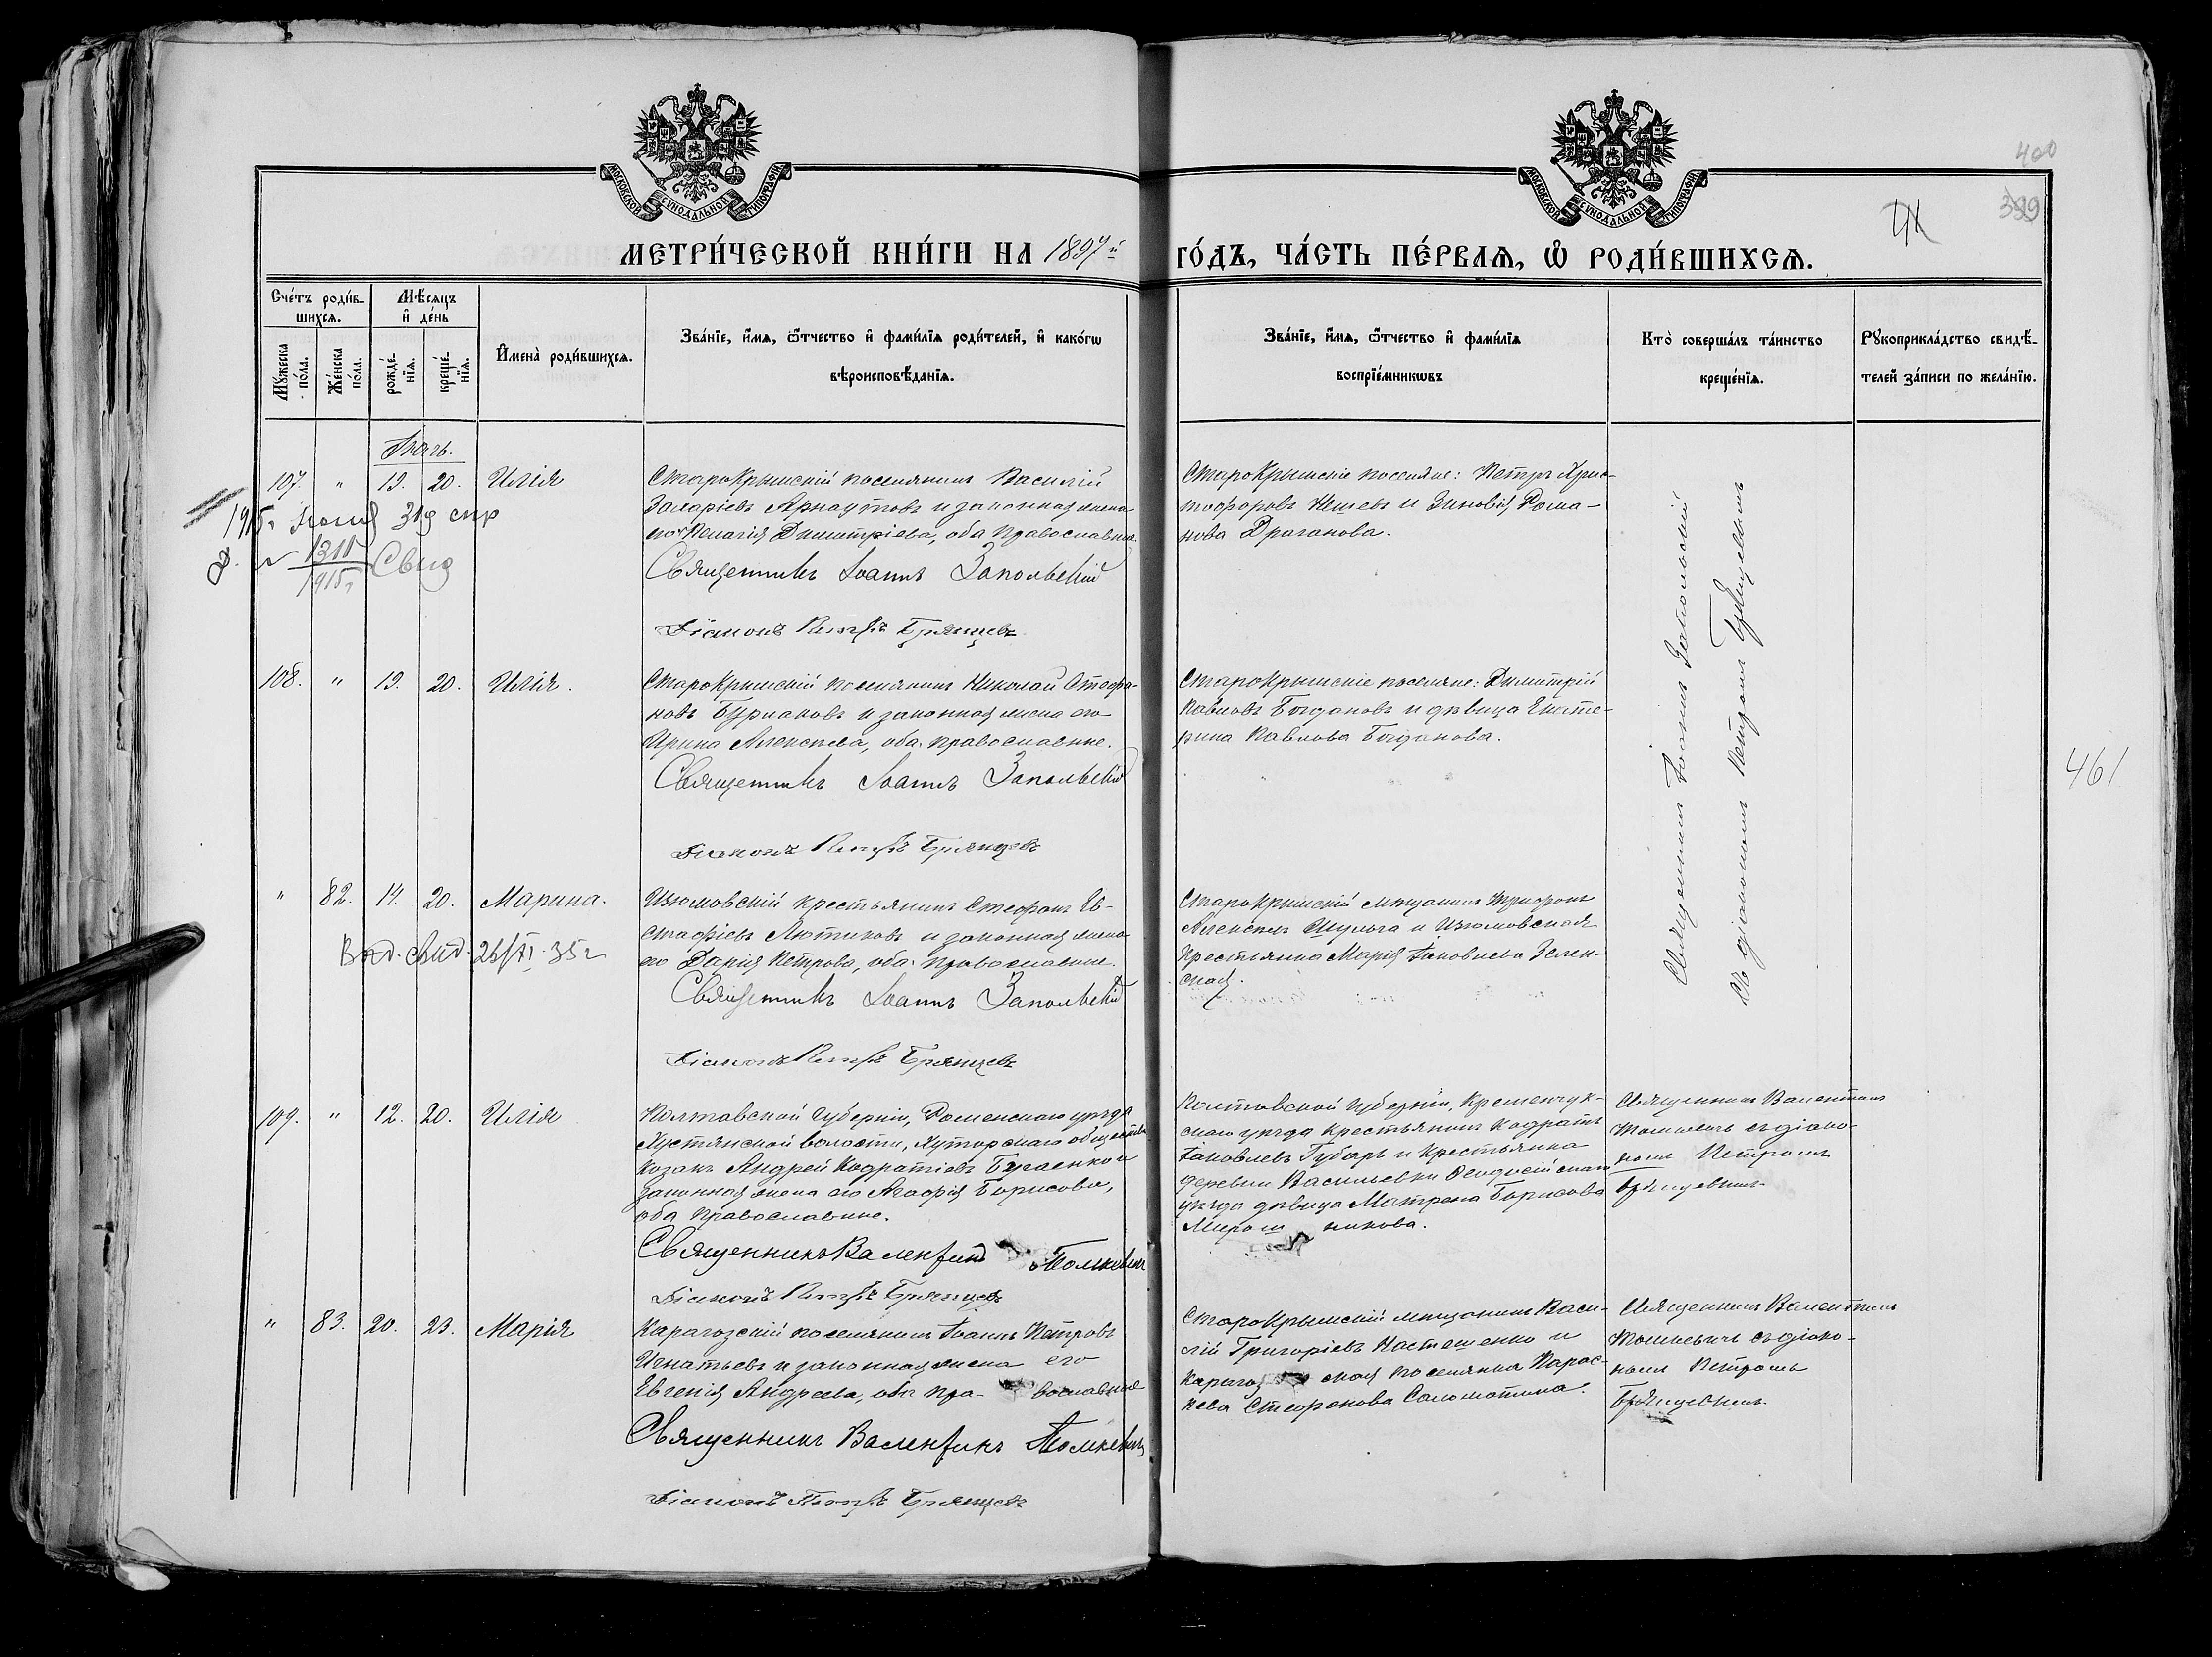 МОСКОВСКОЙ СѴНОДАЛЬНОЙ ТИПОГРАФІИ
МОСКОВСКОЙ СѴНОДАЛЬНОЙ ТИПОГРАФІИ
400
399
МЕТРИ́ЧЕСКОЙ КНИ́ГИ НА 1897 й ГО́ДЪ, ЧА́СТЬ ПЕ́РВАѦ, Ѡ РОДИ́ВШИХСѦ.
Сче́тъ роди́в-
шихсѧ.
Мѣ́сѧцъ
и де́нь
Мꙋ́жеска
по́ла.
Же́нска
по́ла.
рожде́-
нїѧ.
креще́-
нїѧ.
Имена̀ роди́вшихсѧ.
Зва́нїе, и́мѧ, ѻ҆́тчество и фами́лїѧ роди́телей, и како́гѡ
вѣроисповѣ́данїѧ.
Зва́нїе, и́мѧ, ѻ҆́тчество и фами́лїѧ
воспрїе́мникѡвъ
Кто̀ соверша́лъ та́инство
креще́нїѧ.
Рꙋкоприкла́дство свидѣ́-
телей за́писи по жела́нїю.
107. " 19. 20. Илія
Старокрымскій поселянинъ Василій
Захаріевъ Арнаутовъ и законная жена
его Пелагія Димитріева, оба православные.
Священникъ Іоаннъ Запольскій
Діаконъ Петръ Брянцевъ
Старокрымскіе поселяне: Петръ Хрис-
тофоровъ Нешевъ и Зиновія Рома-
нова Драганова.
1915 г. Іюня
1915 г. Свид
Священникъ Іоаннъ Запольскій
съ діакономъ Петромъ Брянцевымъ
108. " 19. 20. Илія.
Старокрымскій поселянинъ Николай Стефа-
новъ Бурлаковъ и законная жена его
Ирина Алексѣева, оба православные.
Священникъ Іоаннъ Запольскій
Діаконъ Петръ Брянцевъ
Старокрымскіе поселяне: Димитрій
Павловъ Богдановъ и дѣвица Екате-
рина Павлова Богданова.
461
" 82. 14. 20. Марина.
Изюмовскій крестьянинъ Стефанъ Ев-
стафіевъ Лютиковъ и законная жена
его Дарія Петрова, оба православные.
Священникъ Іоаннъ Запольскій
Діаконъ Петръ Брянцевъ
Старокрымскій мѣщанинъ Трифонъ
Алексѣевъ Шульга и Изюмовская
крестьянка Марія Яковлева Зелен-
ская.
Выд. свид. 26/XI 35 г
109. " 12. 20. Илія
Полтавской губерніи, Роменскаго уѣзда
волости, Хуторскаго общества
козакъ Андрей Кодратіевъ Бугаенко и
законная жена его Агафія Борисова,
оба православные.
Священникъ Валентинъ Томкевичъ
Діаконъ Петръ Брянцевъ
Полтавской губерніи, Кременчук-
скаго уѣзда крестьянинъ Кодратъ
Яковлевъ Губарь и крестьянка
деревни Васильевки Ѳеодосійскаго
уѣзда дѣвица Матрена Борисова
Мирошникова.
Священникъ Валентинъ
Томкевичъ съ діако-
номъ Петромъ
Брянцевымъ
" 83. 20. 23. Марія
Карагозскій поселянинъ Іоаннъ Петровъ
Игнатьевъ и законная жена его
Евгенія Андреева, оба православные
Священникъ Валентинъ Томкевичъ
Діаконъ Петръ Брянцевъ
Старокрымскій мѣщанинъ Васи-
лій Григоріевъ Костешенко и
Карагозская поселянка Парас-
кева Стефанова Саломатина.
Священникъ Валентинъ
Томкевичъ съ діако-
номъ Петромъ
Брянцевымъ.